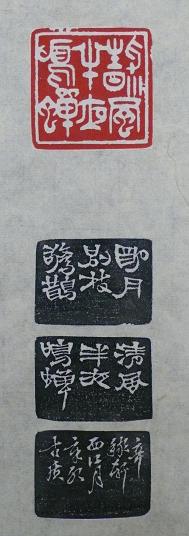 清風
半夜
鳴蟬
明月
別枝
驚鵲
清風
半夜
鳴蟬
辛
稼軒
西江月